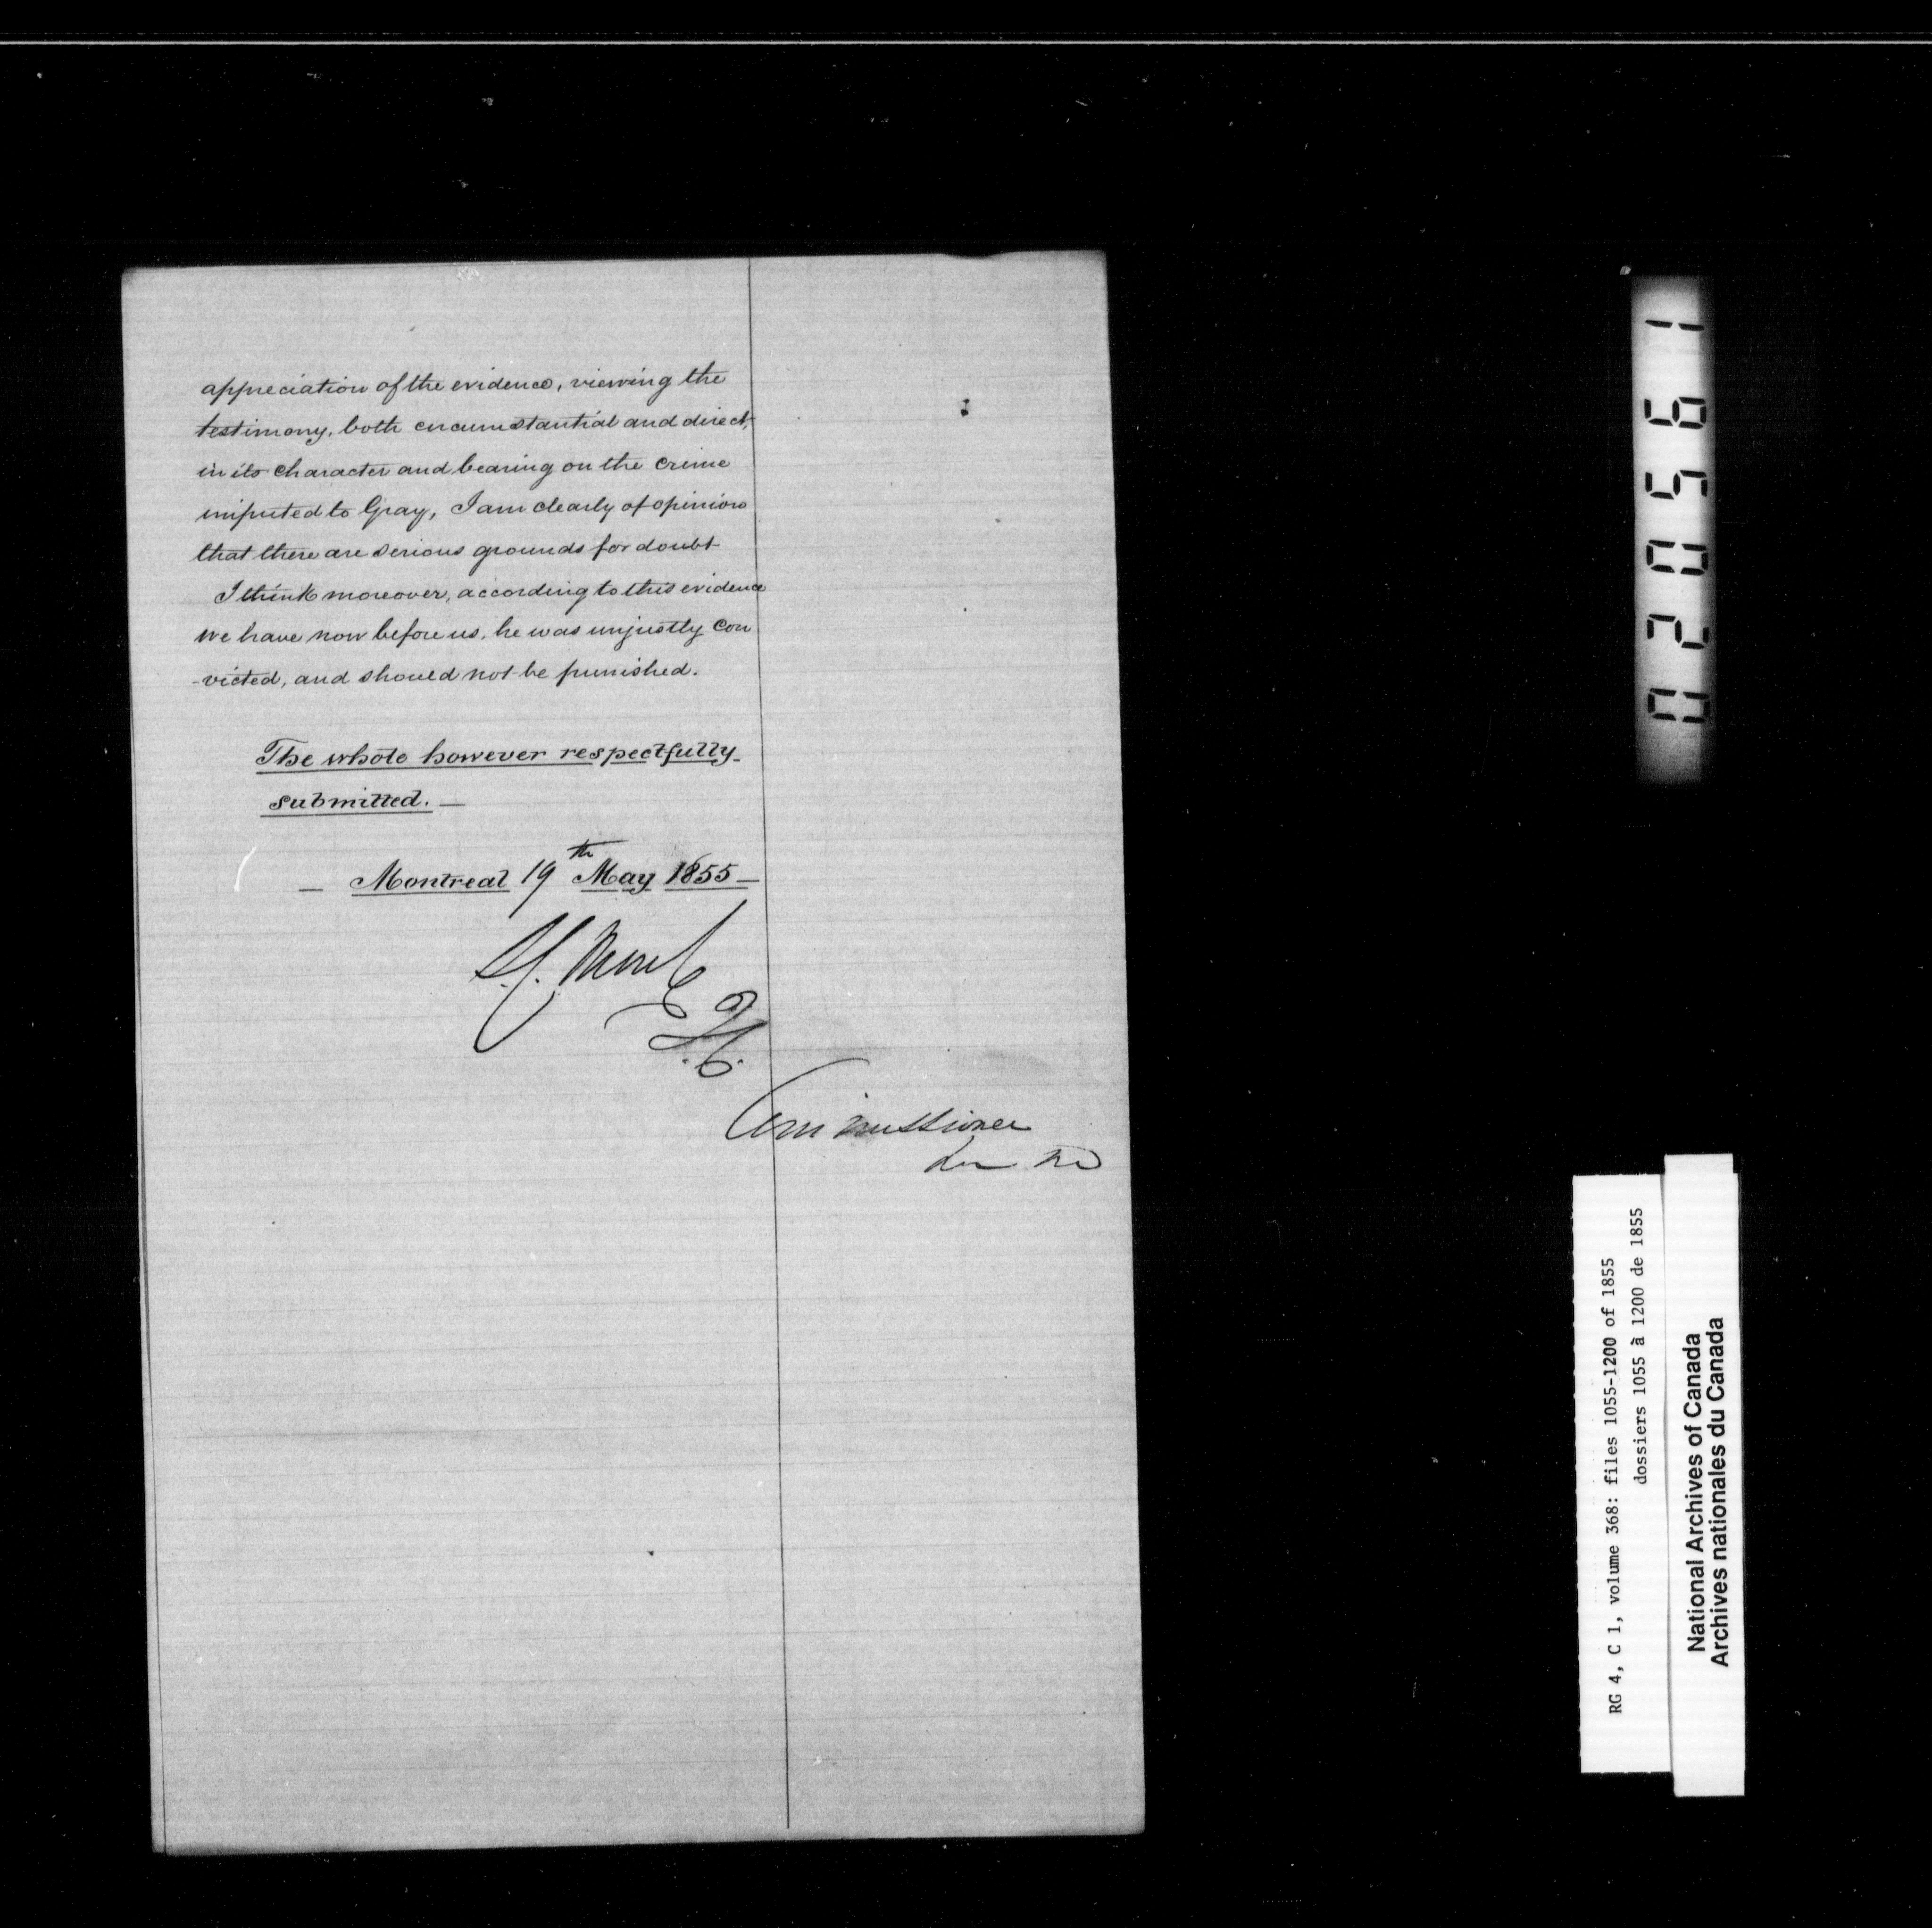 appreciation of the evidence, viewing the
testimony, both circumstantial and direct,
in its character and bearing on the crime
imputed to Gray, I am clearly of opinion
that there are serious grounds for doubt
I think moreover, according to this evidence
we have now before us, he was unjustly con
-victed, and should not be punished.
The whole however respectfully
submitted. —
— Montreal 19th May 1855 —
Commissioner
020561
RG 4, C 1, volume 368: files 1055-1200 of 1855
dossiers 1055 à 1200 de 1855
National Archives of Canada
Archives nationales du Canada